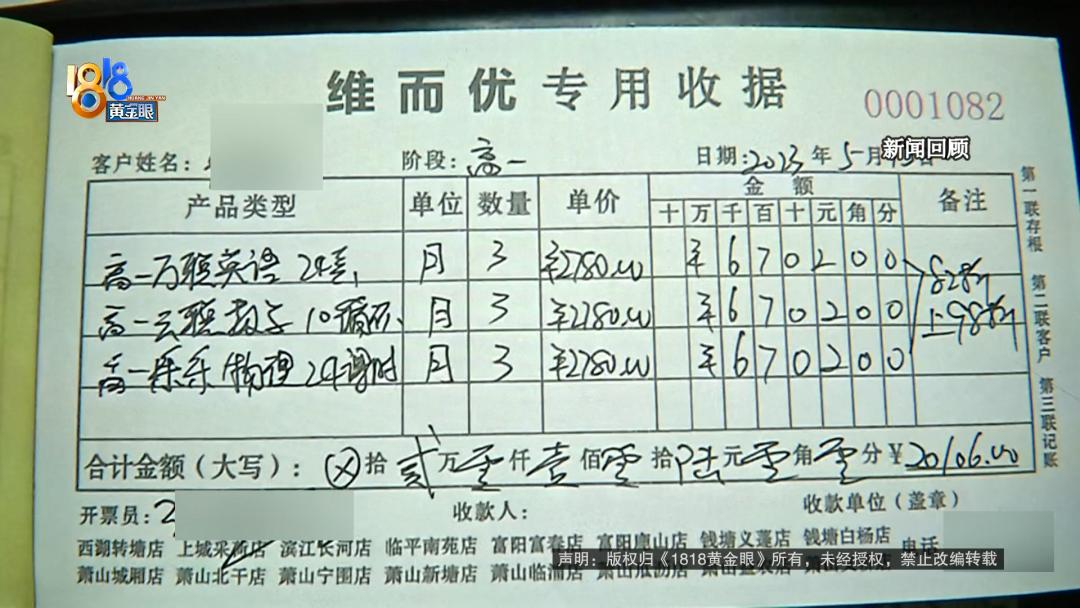 1818
HUANG JIN YAN
黄金眼
维而优专用收据 0001082
新闻回顾
客户姓名: 阶段:高一 日期:2023年5月
产品类型 单位 数量 单价 金额 备注
十 万 千 百 十 元 角 分
高一 英语 24 月 3 ¥2780.00 ¥670200 82折
高一 数学 10 月 3 ¥2780.00 ¥670200 上98折
高一乐乐物理24课时 月 3 ¥2780.00 ¥670200
合计金额(大写): ⊗拾贰万零仟壹佰零拾陆元零角零分 ¥20106.00
开票员: 收款人: 收款单位(盖章)
西湖转塘店 上城采荷店 滨江长河店 临平南苑店 富阳富春店 富阳鹿山店 钱塘义蓬店 钱塘白杨店 电话
萧山城厢店 萧山北干店 萧山宁围店 萧山新塘店 萧山临浦店
第一联存根 第二联客户 第三联记账
声明:版权归《1818黄金眼》所有,未经授权,禁止改编转载